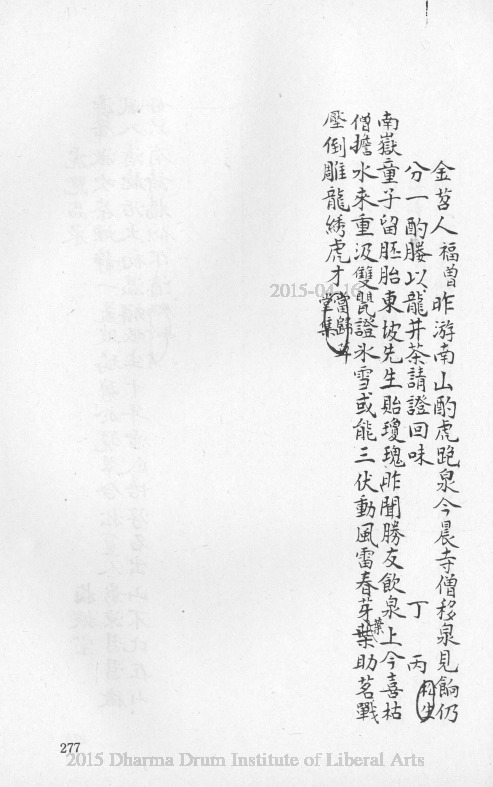 金苕人福曾昨游南山酌虎跑泉今晨寺僧移泉見餉仍
分一酌媵以龍井茶請證回味
丁丙松生
南嶽童子留胚胎東坡先生貽瓊瑰昨聞勝友飲泉上今喜枯
僧擔水來重汲雙甖證冰雪或能三伏動風雷春芽葉助茗戰
壓倒雕龍綉虎才當歸草堂集
277
2015-04-16
2015 Dharma Drum Institute of Liberal Arts